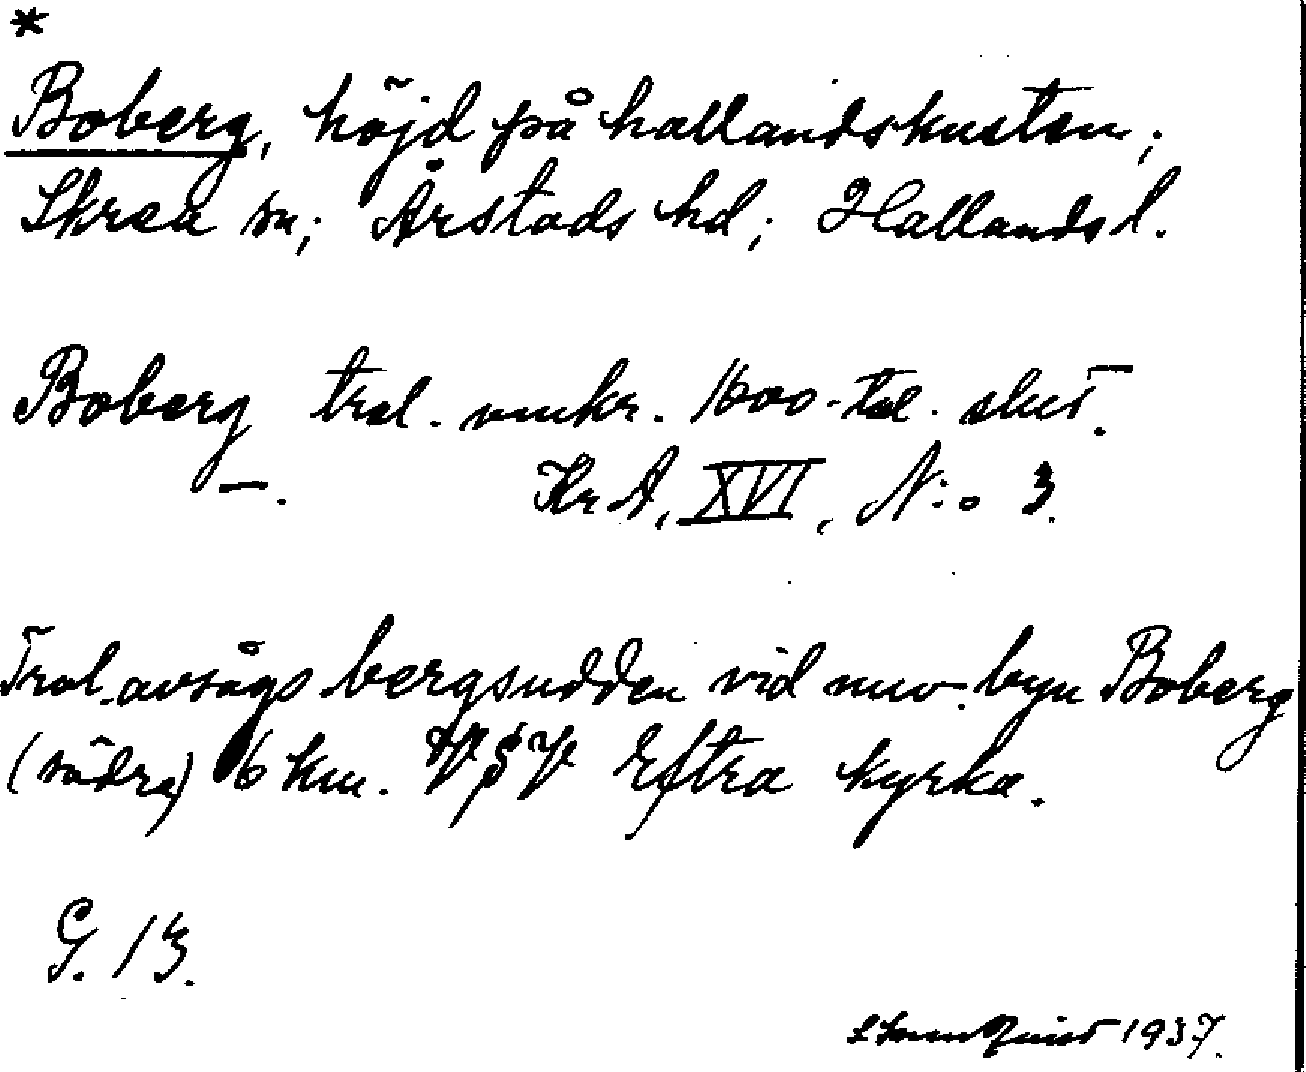 *
Boberg, höjd på hallandskusten;
Skrea sn; Årstads hd; Hallands l.
Boberg trol. omkr. 1600-tal. slut.
—. KrA, XVI, N:o 3.
Trol. avsågs bergsudden vid nuv. byn Boberg
(södra) 6 km. VSV Eftra kyrka.
G. 13.
1937.